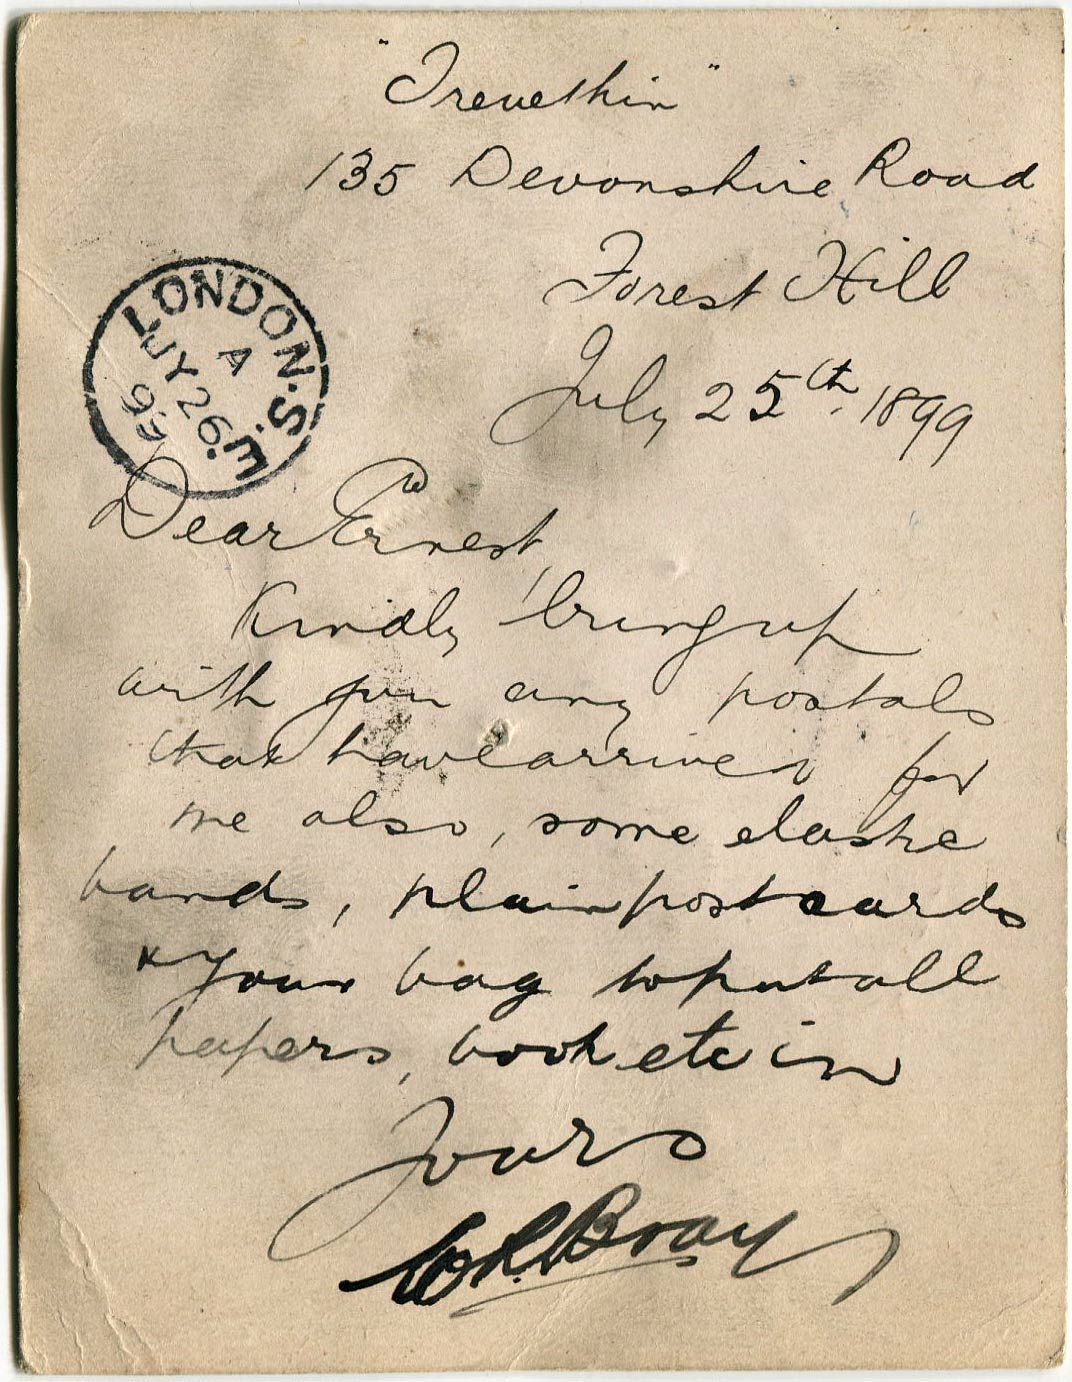 "Trevethin"
135 Devonshire Road
Forest Hill
July 25th. 1899
LONDON. S.E.
A
JY 26
99
Dear Ernest,
Kindly bring up
with you any postals
that have arrived for
me also, some elastic
bands, plain postcards
& your bag to put all
papers, book etc in
Yours
W R. Bray